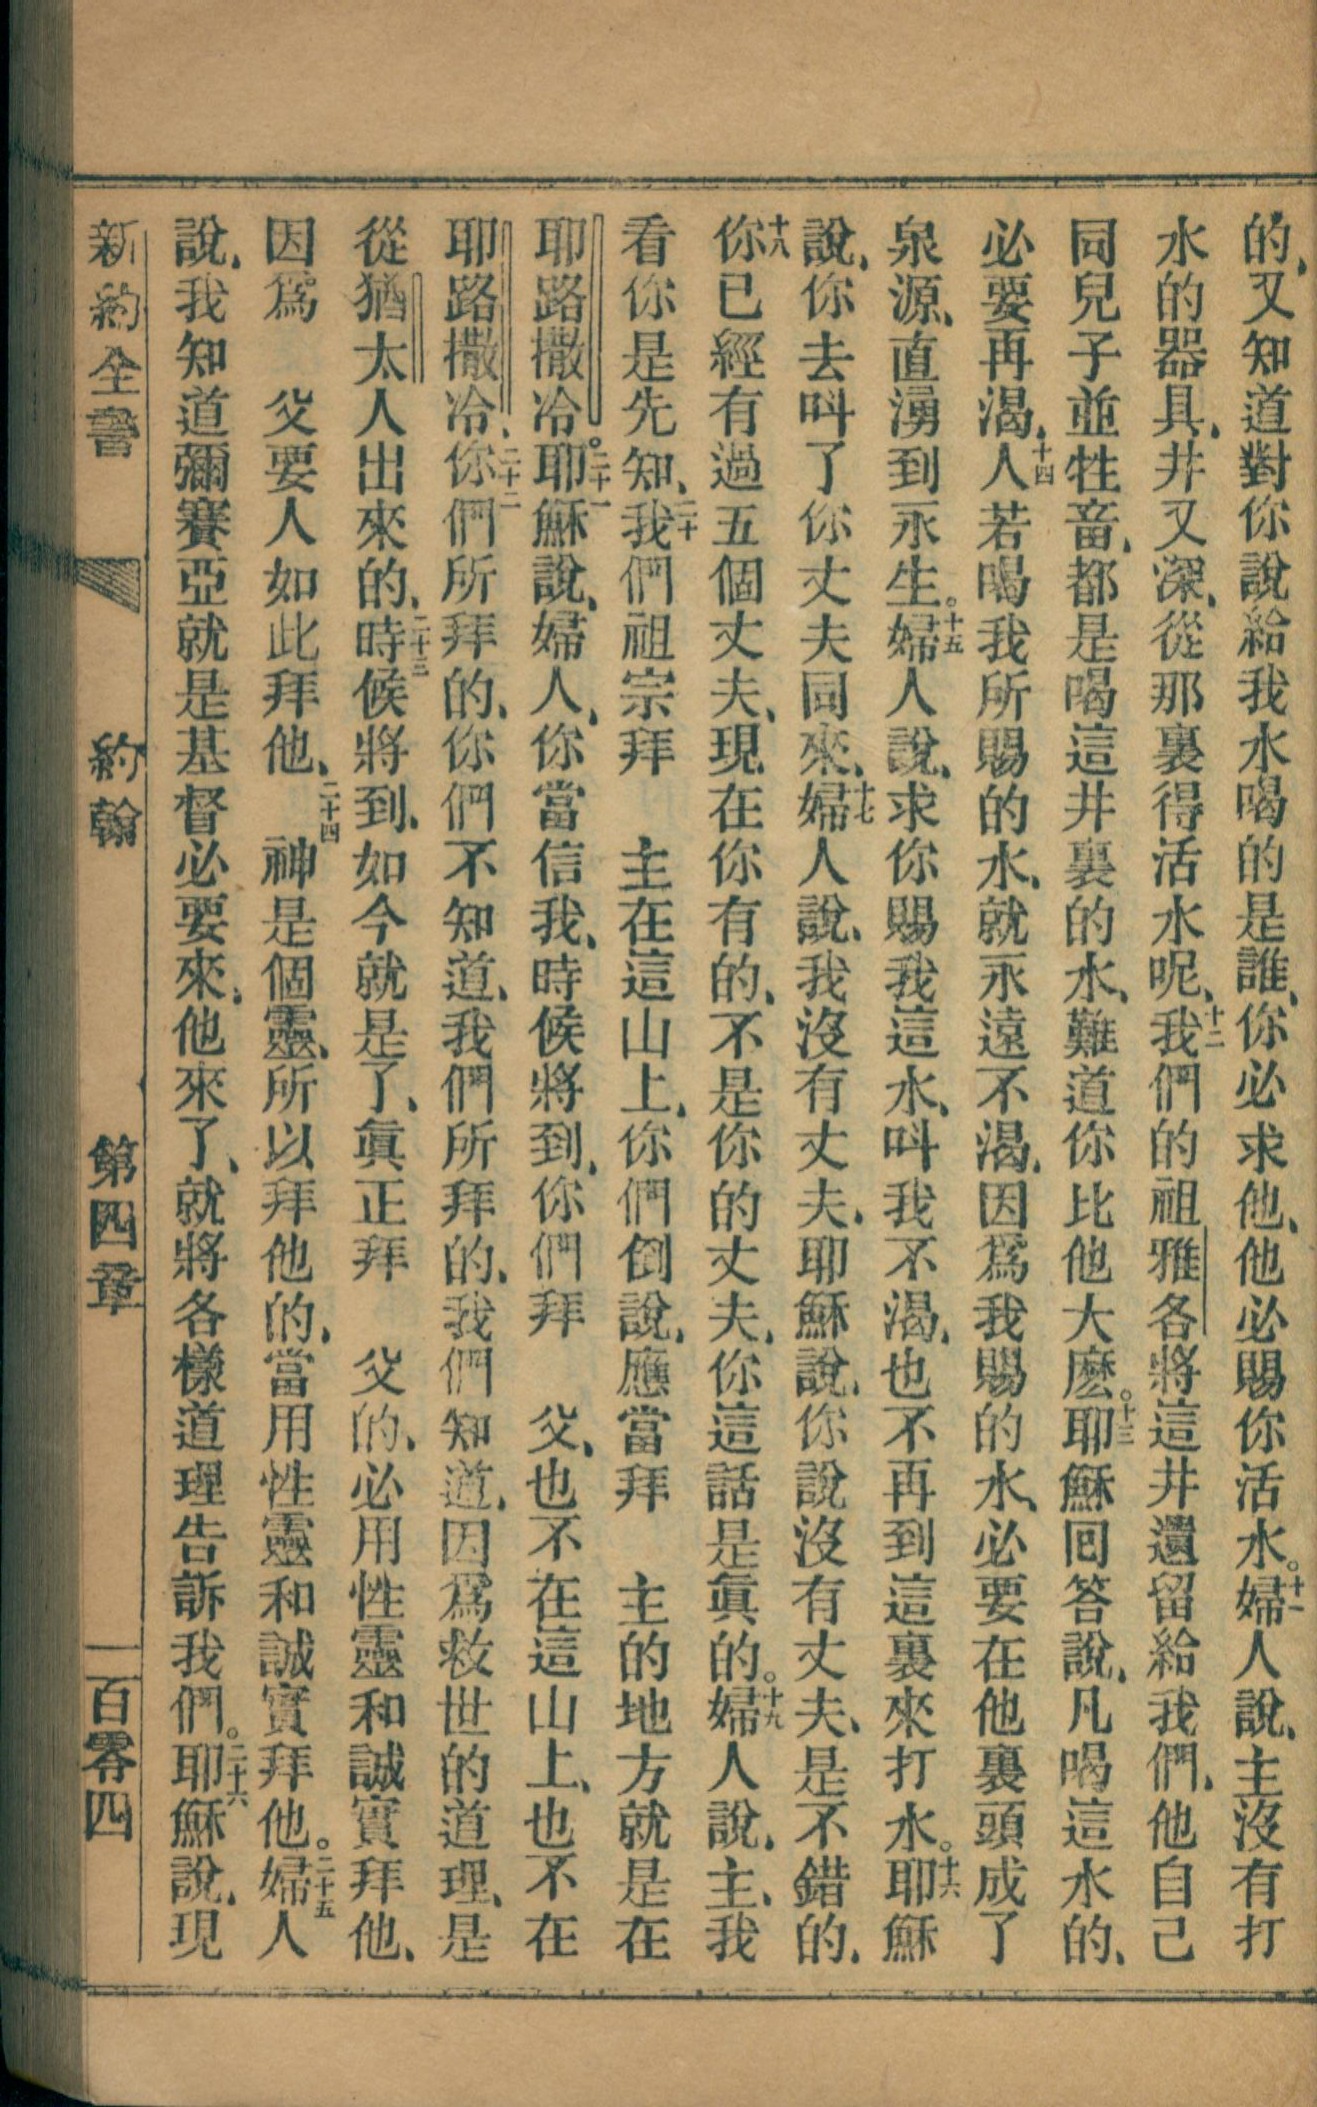 的、又知道對你說給我水喝的是誰、你必求他、他必賜你活水。十一婦人說、主沒有打
水的器具、井又深、從那裏得活水呢、十二我們的祖雅各將這井遺留給我們、他自己
同兒子並牲畜、都是喝這井裏的水、難道你比他大麽。十三耶穌回答說、凡喝這水的、
必要再渴、十四人若喝我所賜的水、就永遠不渴、因爲我賜的水、必要在他裏頭成了
泉源、直湧到永生。十五婦人說、求你賜我這水、呌我不渴、也不再到這裏來打水。十六耶穌
說、你去呌了你丈夫同來、十七婦人說、我沒有丈夫、耶穌說、你說沒有丈夫、是不錯的、
十八你已經有過五個丈夫、現在你有的、不是你的丈夫、你這話是眞的。十九婦人說、主、我
看你是先知、二十我們祖宗拜　主在這山上、你們倒說、應當拜　主的地方就是在
耶路撒冷。二十一耶穌說、婦人、你當信我、時候將到、你們拜　父、也不在這山上、也不在
耶路撒冷、二十二你們所拜的、你們不知道、我們所拜的、我們知道、因爲救世的道理、是
從猶太人出來的、二十三時候將到、如今就是了、眞正拜　父的、必用性靈和誠實拜他、
因爲　父要人如此拜他、二十四　神是個靈、所以拜他的、當用性靈和誠實拜他。二十五婦人
說、我知道彌賽亞就是基督必要來、他來了、就將各樣道理告訴我們。二十六耶穌說、現
新約全書　約翰　第四章　一百零四